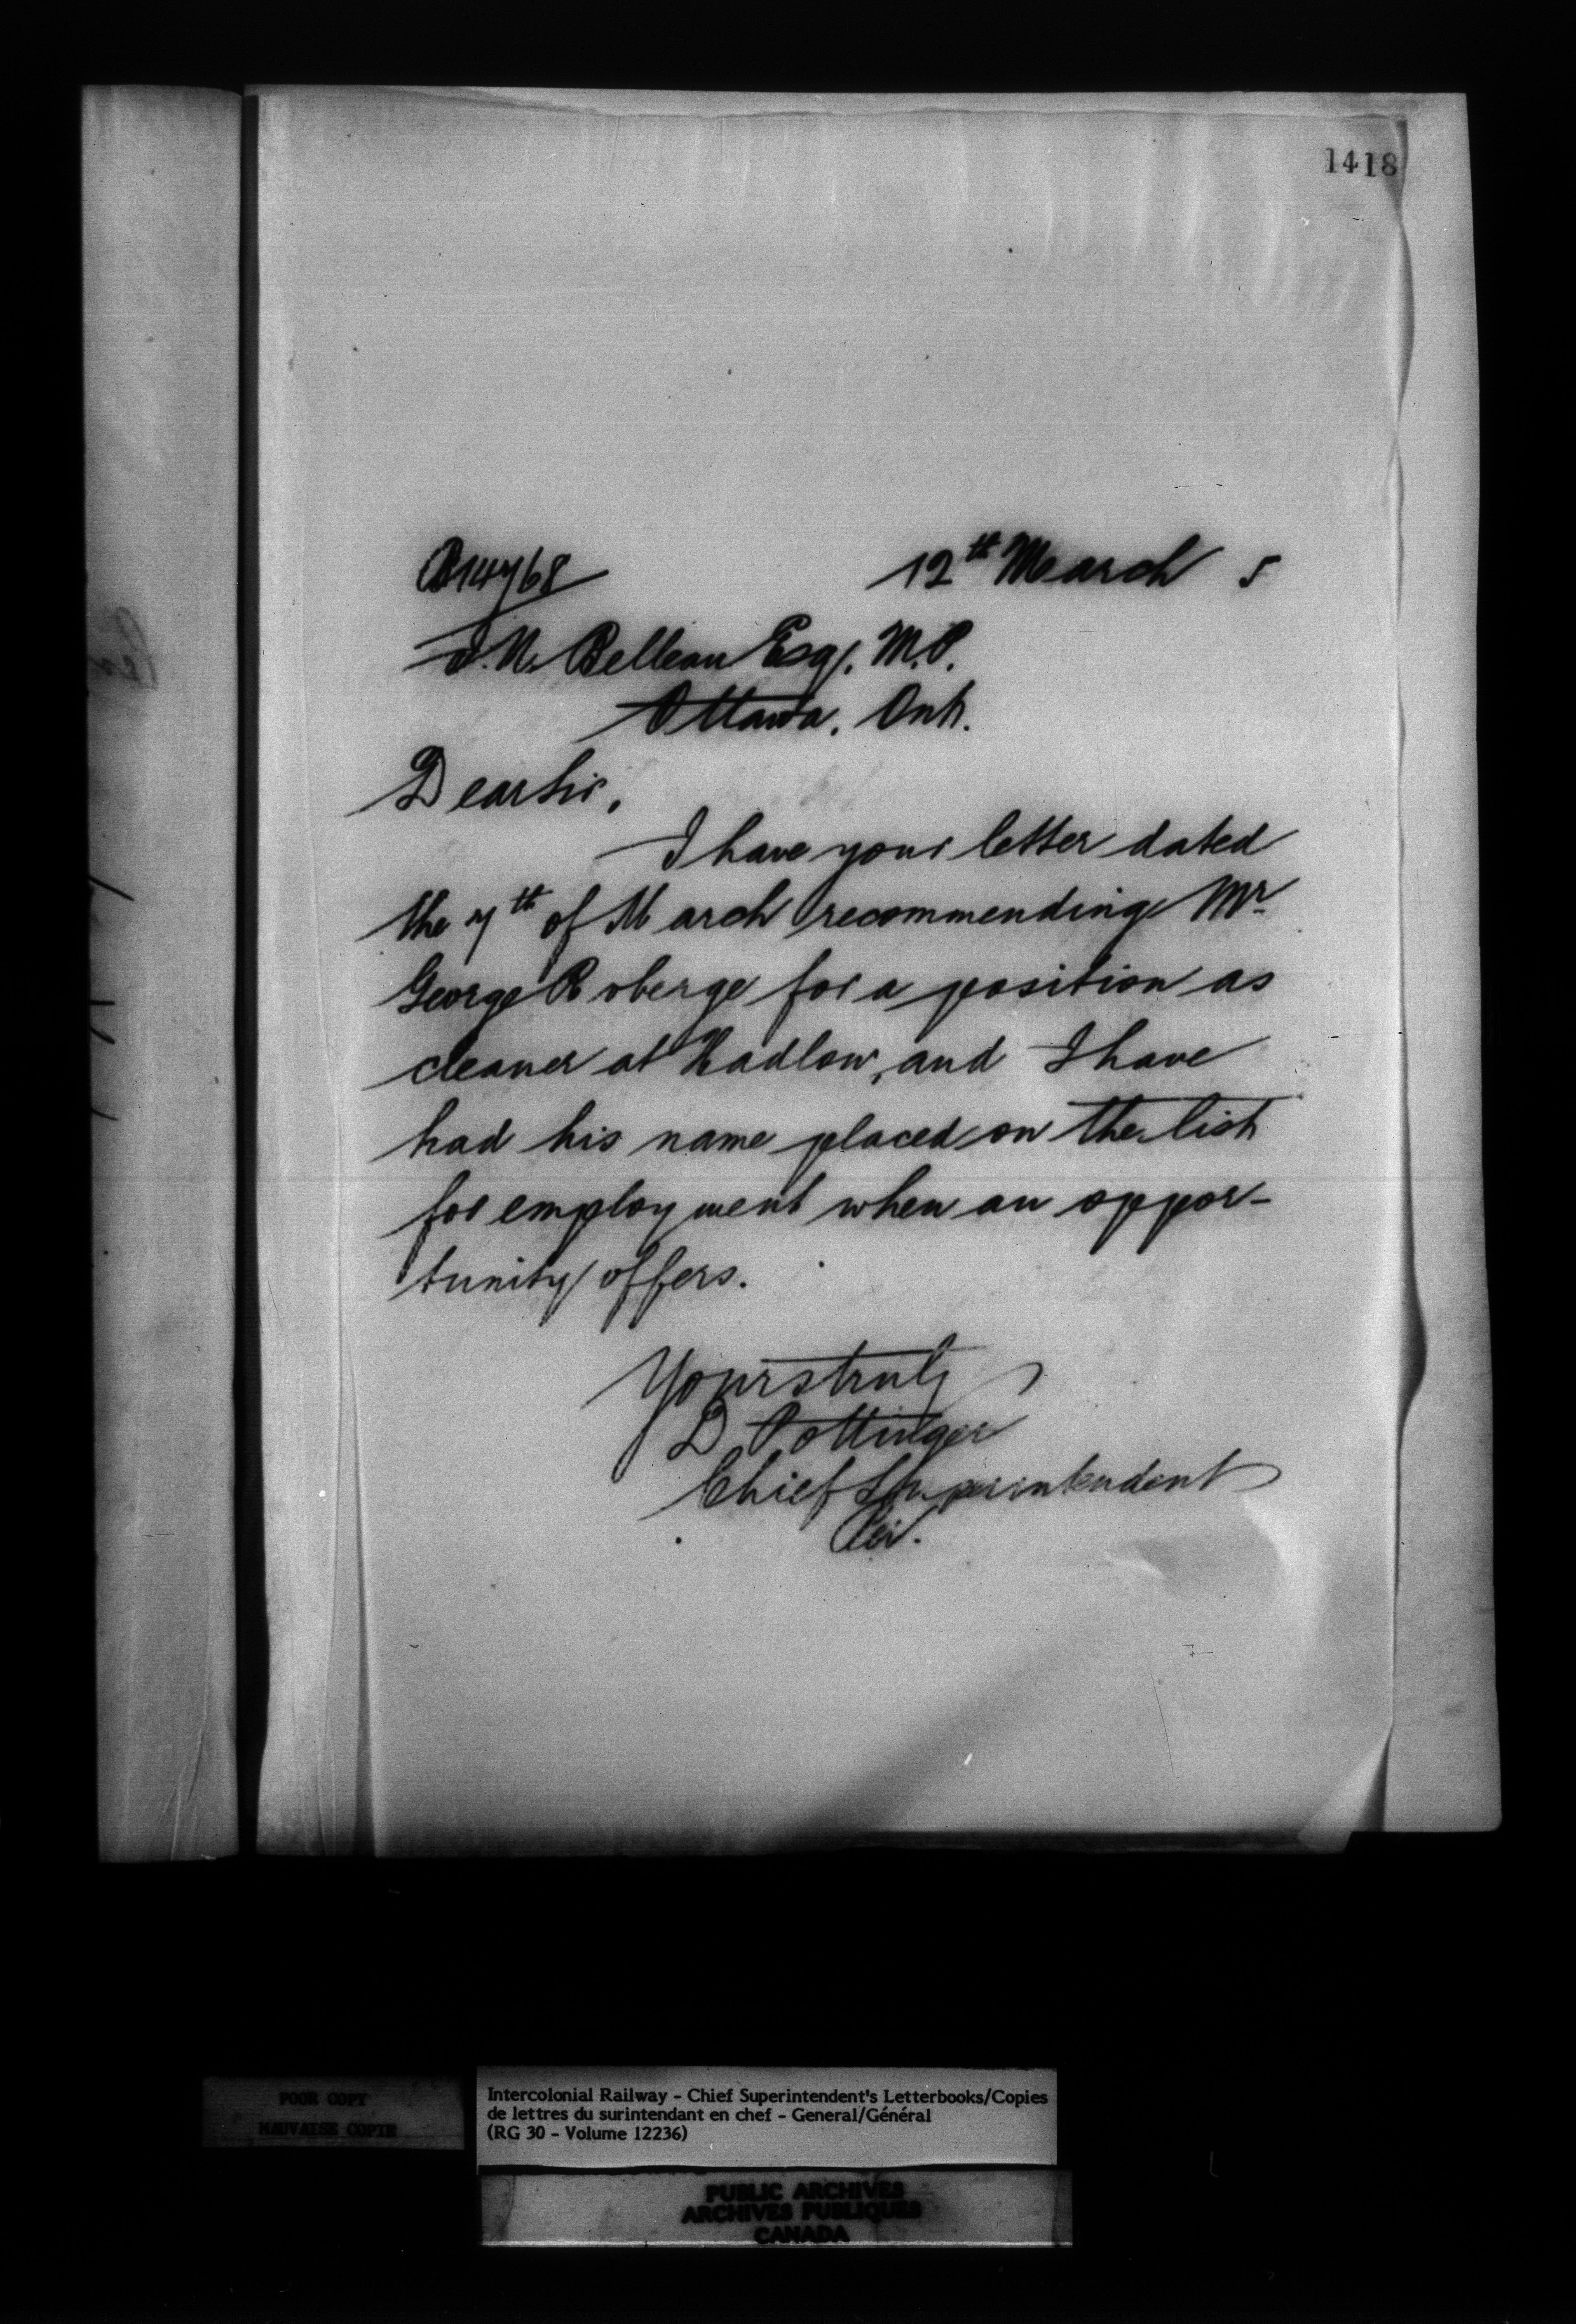 1418
B14768
12th March 5
I. N. Belleau Esq. M.P.
Ottawa, Ont.
Dear Sir,
I have your letter dated
the 7th of March recommending Mr
George Roberge for a position as
cleaner at Hadlow, and I have
had his name placed on the list
for employment when an oppor-
tunity offers.
Yours truly
D. Pottinger
Chief Superintendent
POOR COPY
MAUVAISE COPIE
Intercolonial Railway - Chief Superintendent's Letterbooks/Copies
de lettres du surintendant en chef - General/Général
(RG 30 - Volume 12236)
PUBLIC ARCHIVES
ARCHIVES PUBLIQUES
CANADA